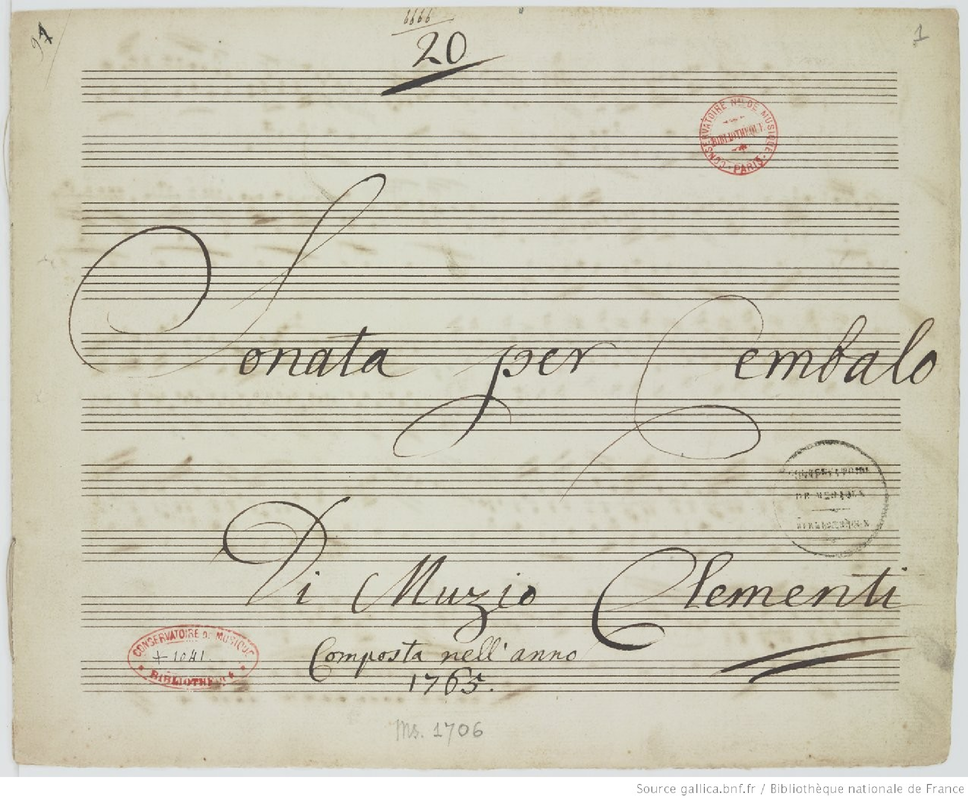 94
6666
20
1
CONSERVATOIRE Nal DE MUSIQUE
BIBLIOTHEQUE
PARIS
Sonata per Cembalo
CONSERVATOIRE
DE MUSIQUE
BIBLIOTHEQUE
Di Muzio Clementi
CONSERVATOIRE DE MUSIQUE
+1041
BIBLIOTHEQUE
Composta nell'anno
1765.
Ms. 1706
Source gallica.bnf.fr / Bibliothèque nationale de France